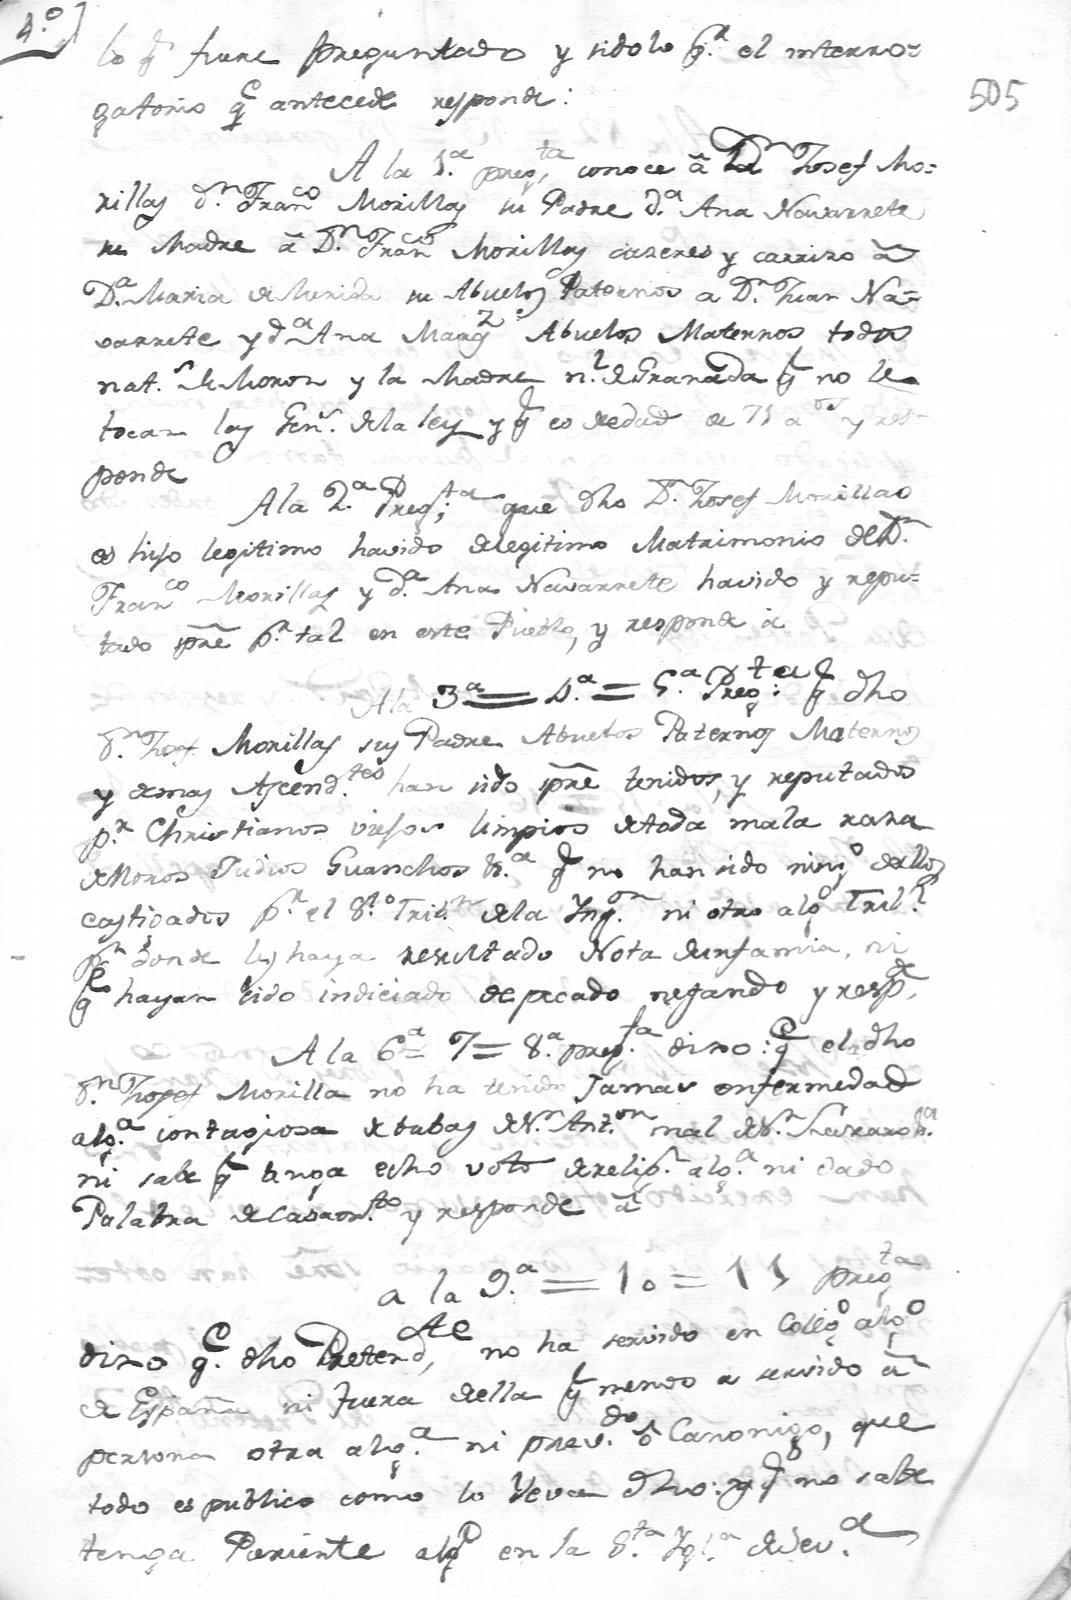 4.º
lo q.e fuere preguntado y sidolo p.r el interro=
gatorio q.e antecede responde:
505
A la 1.a preg.ta conoce â Dn Josef Mo=
rillas d.n Fran.co Morillas su Padre d.a Ana Navarrete
su Madre â D.n Fran.co Morillas caseres y carrizo â
D.a Maria de Merida su Abuelos Paternos a D.n Juan Na=
varrete y d.a Ana Marq.z Abuelos Maternos todos
nat.s de Moron y la Madre n.l de Granada q.e no le
tocan las Gen.s de la ley y q.e es de edad de 71 a.os y res-
ponde
A la 2.a Preg.ta que dho D.n Josef Morillas
es hijo legitimo havido de legitimo Matrimonio de D.n
Fran.co Morillas y d.a Ana Navarrete havido y repu=
tado spre p.r tal en este Pueblo, y responde â
A la 3.a = 4.a = 5.a Preg.tas q.e dho
d.n Josef Morillas sus Padre Abuelos Paternos Maternos
y demas Ascend.tes han sido spre tenidos, y reputados
p.r Christianos viejos limpios de toda mala raza
de Moros Judios Guanchos &.a q.e no han sido ning.o dellos
castigados p.r el S.to Trib.n de la Ynq.on ni otro alg.o Trib.l
p.r donde les haya resultado Nota de infamia, ni
q.e hayan sido indiciado de pecado nefando y resp.de
A la 6.a = 7 = 8.a preg.ta dixo: q.e el dho
d.n Josef Morilla no ha tenido Jamas enfermedad
alg.a contagiosa de bubas de S.n Ant.on mal de S.n
ni sabe q.e tenga echo voto de relig.n alg.a ni dado
Palabra de Casam.to y responde â
a la 9.a = 10 = 11 preg.ta
dixo q.e dho Pretend.te no ha servido en Coleg.o alg.o
de España ni fuera della q.e menos a servido â
persona otra alg.a ni prev.do ô Canonigo, que
todo es publico como lo lleva dho: y q.e no sabe
tenga Pariente alg.o en la S.ta Ygl.a de Sev.a